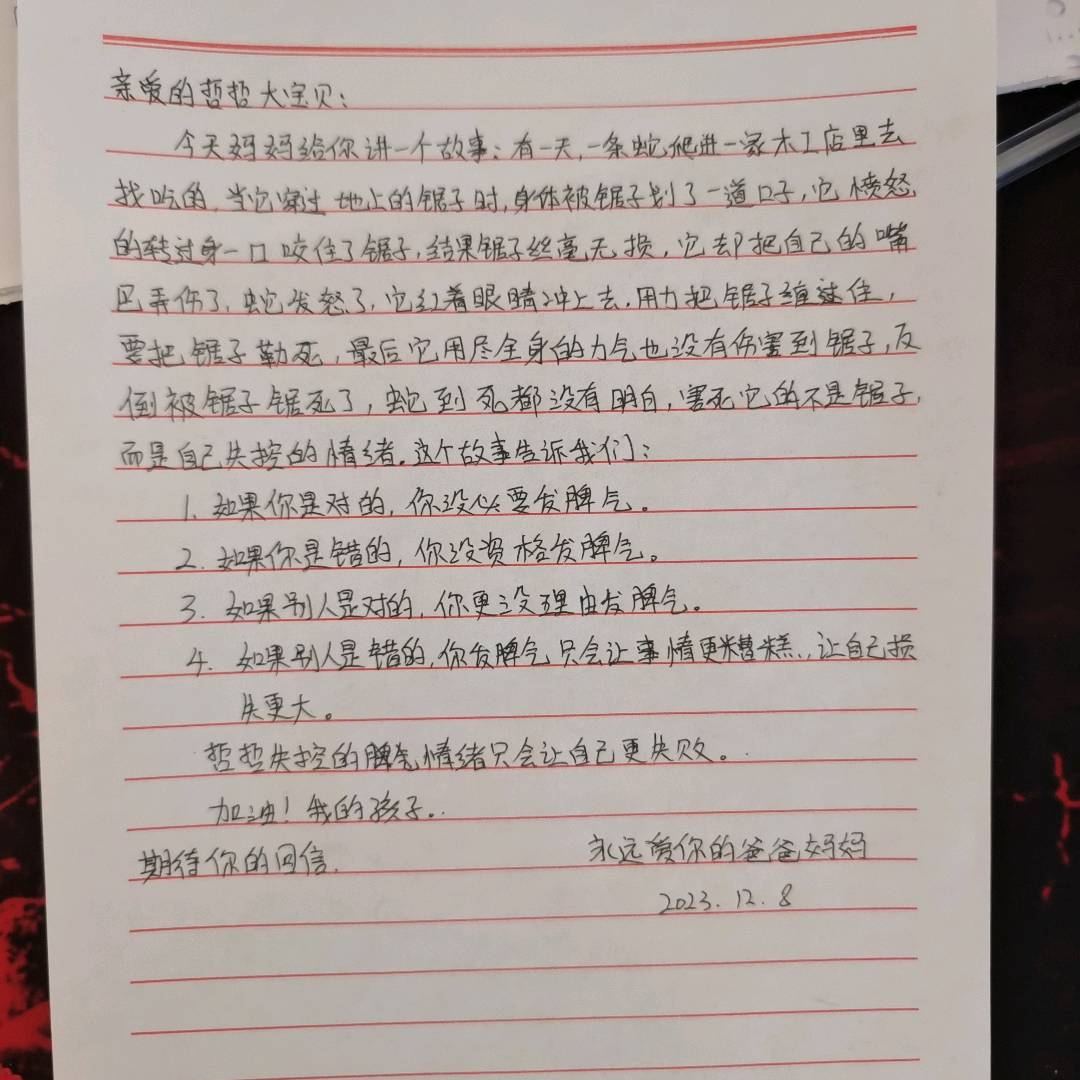 亲爱的哲哲大宝贝：
今天妈妈给你讲一个故事：有一天，一条蛇爬进一家木工店里去
找吃的，当它穿过地上的锯子时，身体被锯子划了一道口子，它愤怒
的转过身一口咬住了锯子，结果锯子丝毫无损，它却把自己的嘴
巴弄伤了，蛇发怒了，它红着眼睛冲上去，用力把锯子缠住，
要把锯子勒死，最后它用尽全身的力气也没有伤害到锯子，反
倒被锯子锯死了，蛇到死都没有明白，害死它的不是锯子，
而是自己失控的情绪。这个故事告诉我们：
1. 如果你是对的，你没必要发脾气。
2. 如果你是错的，你没资格发脾气。
3. 如果别人是对的，你更没理由发脾气。
4. 如果别人是错的，你发脾气只会让事情更糟糕，让自己损
失更大。
哲哲失控的脾气情绪只会让自己更失败。
加油！我的孩子。
期待你的回信. 永远爱你的爸爸妈妈
2023.12.8